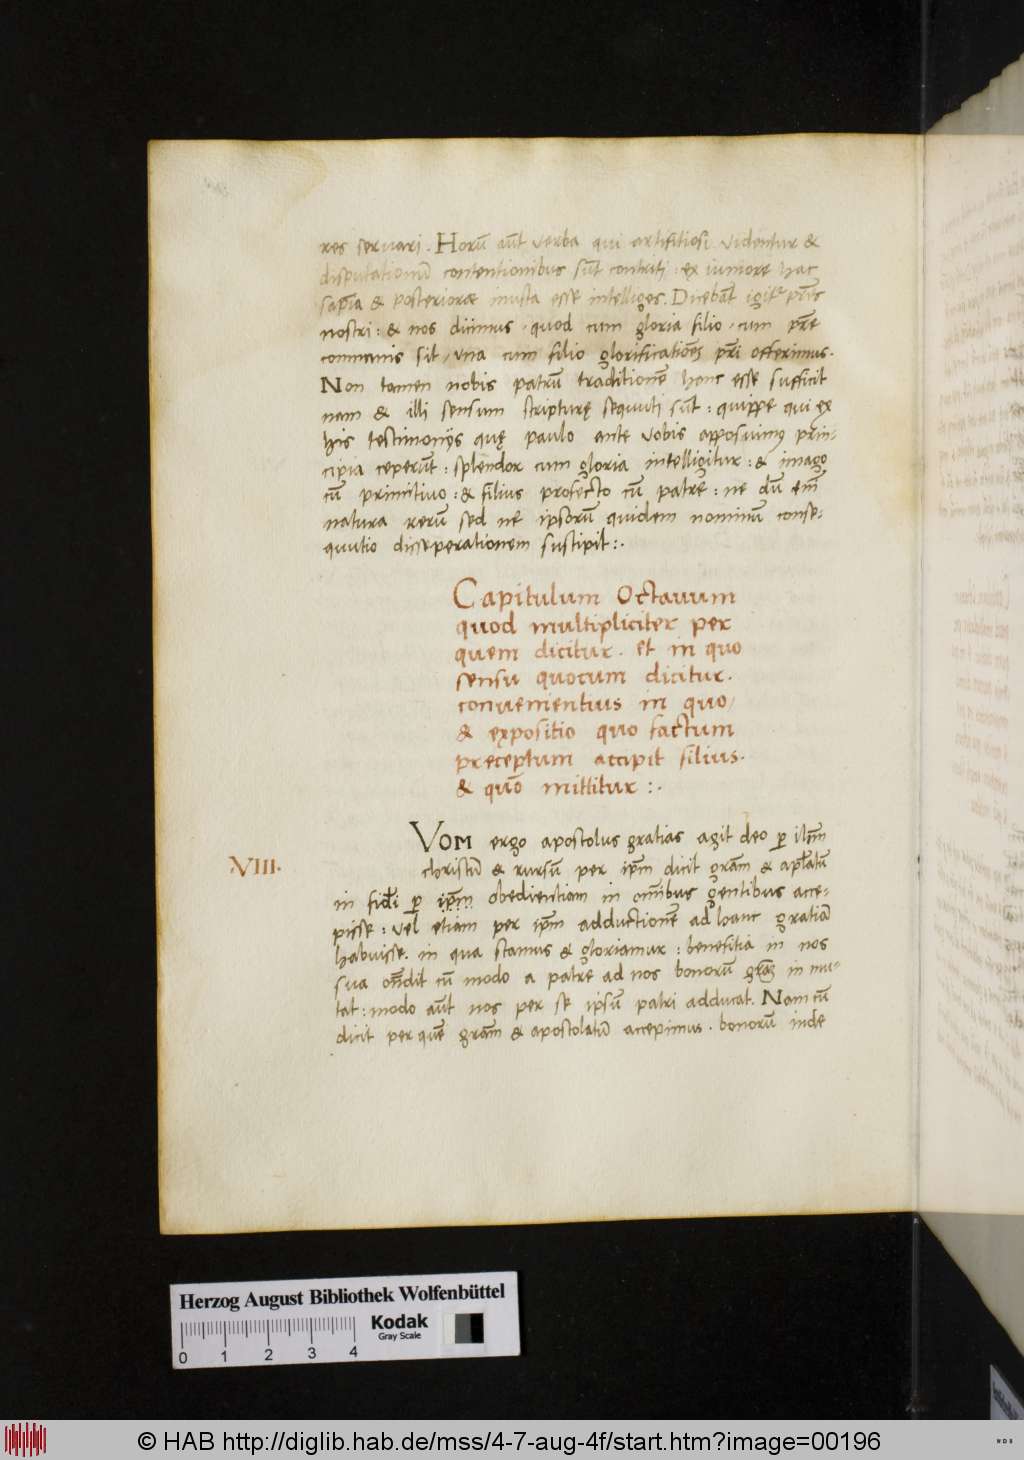 res seruari. Horū aūt verba qui artifitiosi videntur &
disputationū contentionibus sūt contriti: ex iuniore hac
sapīa & posteriorae inusta esse intelliges. Dicebāt igitʳ pr̄es
nostri: & nos dicimus, quod cum gloria filio, cum pr̄e
communis sit, vna cum filio glorificationē pr̄i offerimus.
Non tamen nobis patrū traditionē hanc esse sufficit
nam & illi sensum scripturę sequuti sūt: quippe qui ex
his testimonijs quę paulo ante vobis apposuimꝰ prin-
cipia ceperūt: splendor cum gloria intelligitur: & imago
cū primitiuo: & filius profecto cū patre: ne dū em̄
natura rerū sed ne ipsorū quidem nominū conse-
quutio disseperationem suscipit:.
Capitulum Octauum
quod multipliciter per
quem dicitur. et in quo
sensu quocum dicitur.
conuenientius in quo,
& expositio quo factum
preceptum accipit filius.
& quō mittitur:.
VIII.
VOM ergo apostolus gratias agit deo ꝑ ilm̄
christū & rursū per ip̄m dicit grām & apl̄atū
in fidei ꝑ ip̄m obedientiam in om̄ibus gentibus acce-
pisse: vel etiam per ip̄m adductionē ad hanc gratiā
habuisse. in qua stamus & gloriamur: benefitia in nos
sua on̄dit cū modo a patre ad nos bonorū grās in mu-
tat: modo aūt nos per se ipsū patri adducat. Nam cū
dicit per quē grām & apostolatū accepimus. bonorū inde
Herzog August Bibliothek Wolfenbüttel
Kodak
Gray Scale
0 1 2 3 4
© HAB http://diglib.hab.de/mss/4-7-aug-4f/start.htm?image=00196